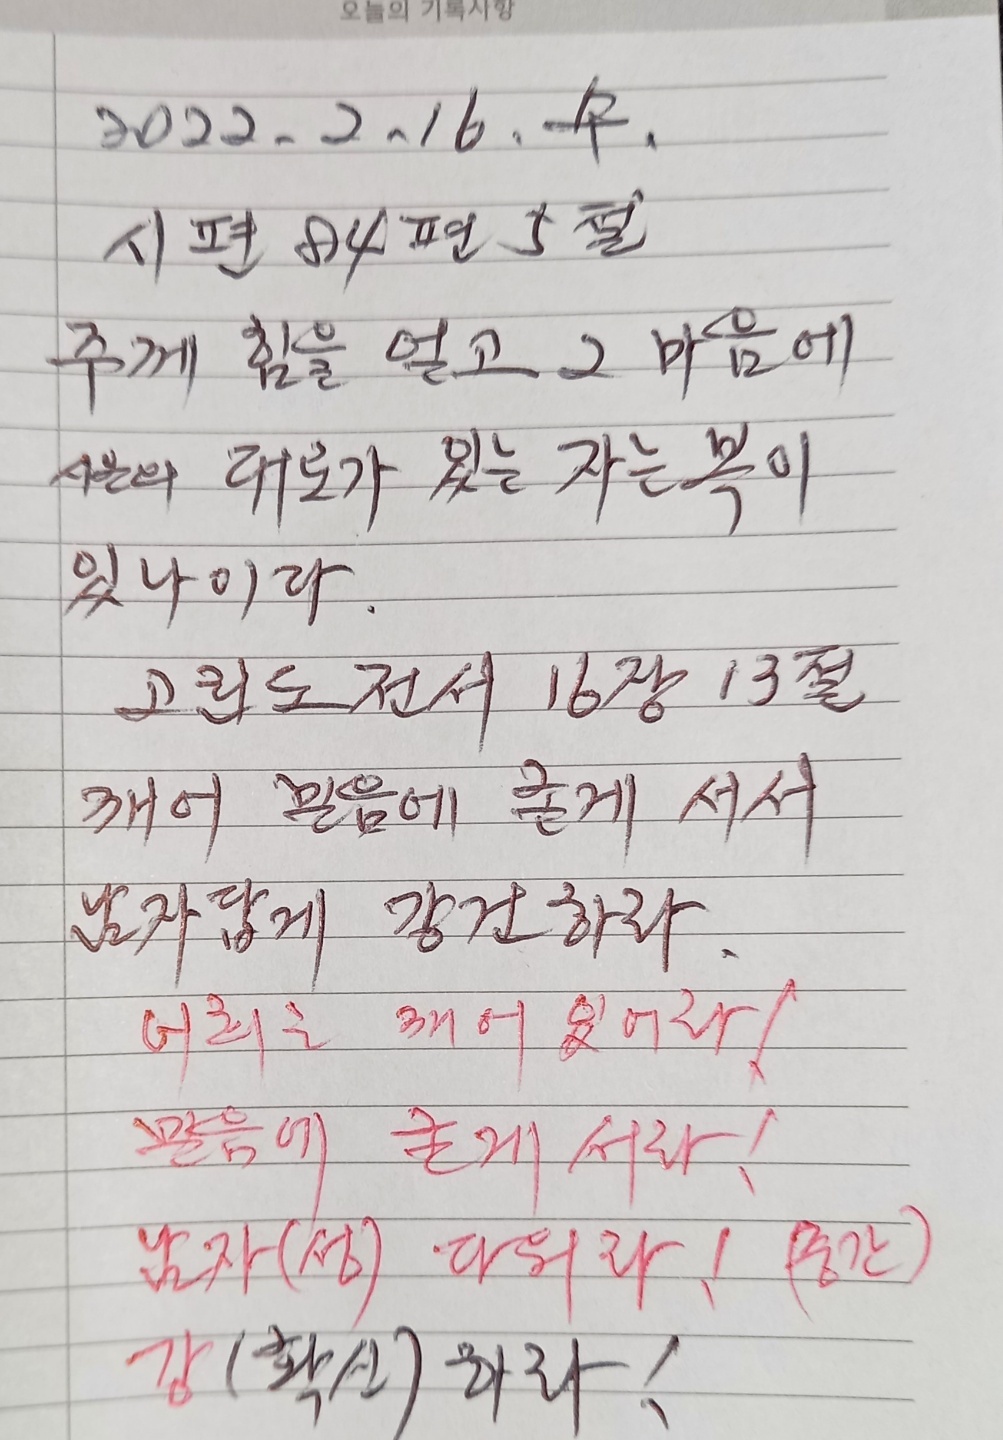 오늘의 기록사항
2022. 2. 16. 수.
시편 84편 5절
주께 힘을 얻고 그 마음에
시온의 대로가 있는 자는 복이
있나이다.
고린도전서 16장 13절
깨어 믿음에 굳게 서서
남자답게 강건하라.
너희는 깨어 있어라!
믿음에 굳게 서라!
남자(성) 다워라! (용감)
강(확신)하라!